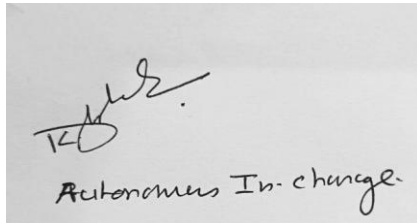 Autonomous In-charge.